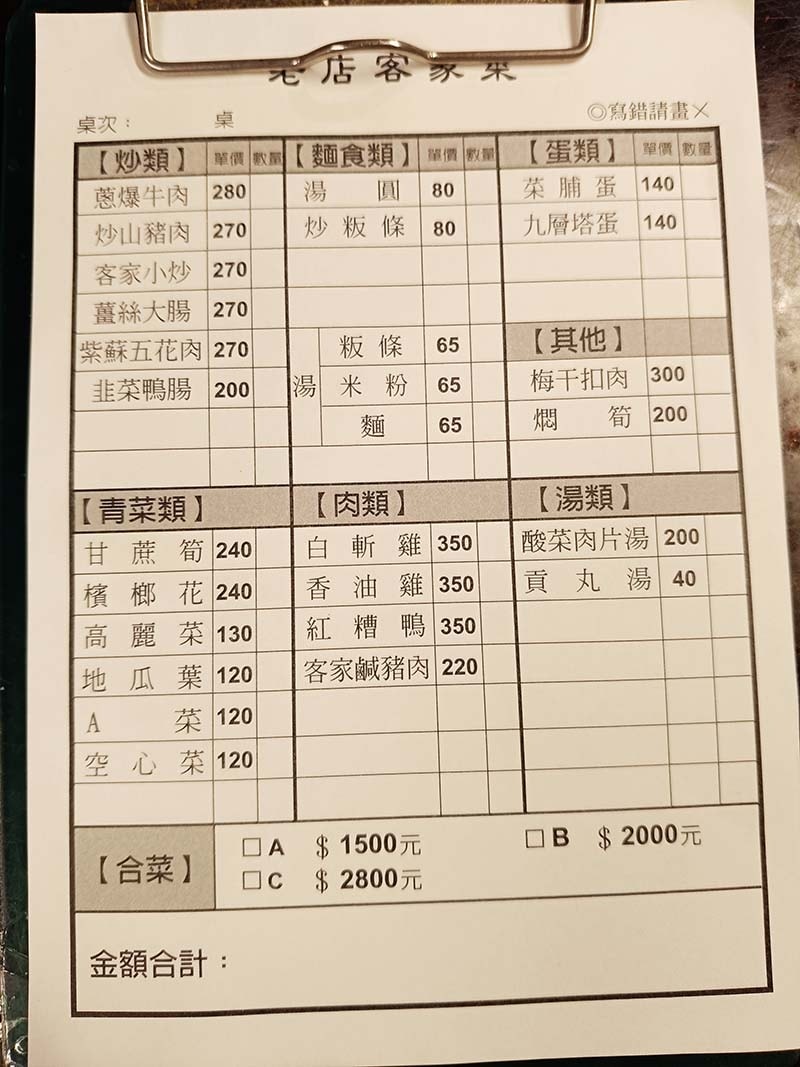 老店客家菜
桌次： 桌 ◎寫錯請畫╳
【炒類】 單價 數量
蔥爆牛肉 280
炒山豬肉 270
客家小炒 270
薑絲大腸 270
紫蘇五花肉 270
韭菜鴨腸 200
【麵食類】 單價 數量
湯圓 80
炒粄條 80
湯
粄條 65
米粉 65
麵 65
【蛋類】 單價 數量
菜脯蛋 140
九層塔蛋 140
【其他】
梅干扣肉 300
燜筍 200
【青菜類】
甘蔗筍 240
檳榔花 240
高麗菜 130
地瓜葉 120
A菜 120
空心菜 120
【肉類】
白斬雞 350
香油雞 350
紅糟鴨 350
客家鹹豬肉 220
【湯類】
酸菜肉片湯 200
貢丸湯 40
【合菜】
□A ＄1500元 □B ＄2000元
□C ＄2800元
金額合計：